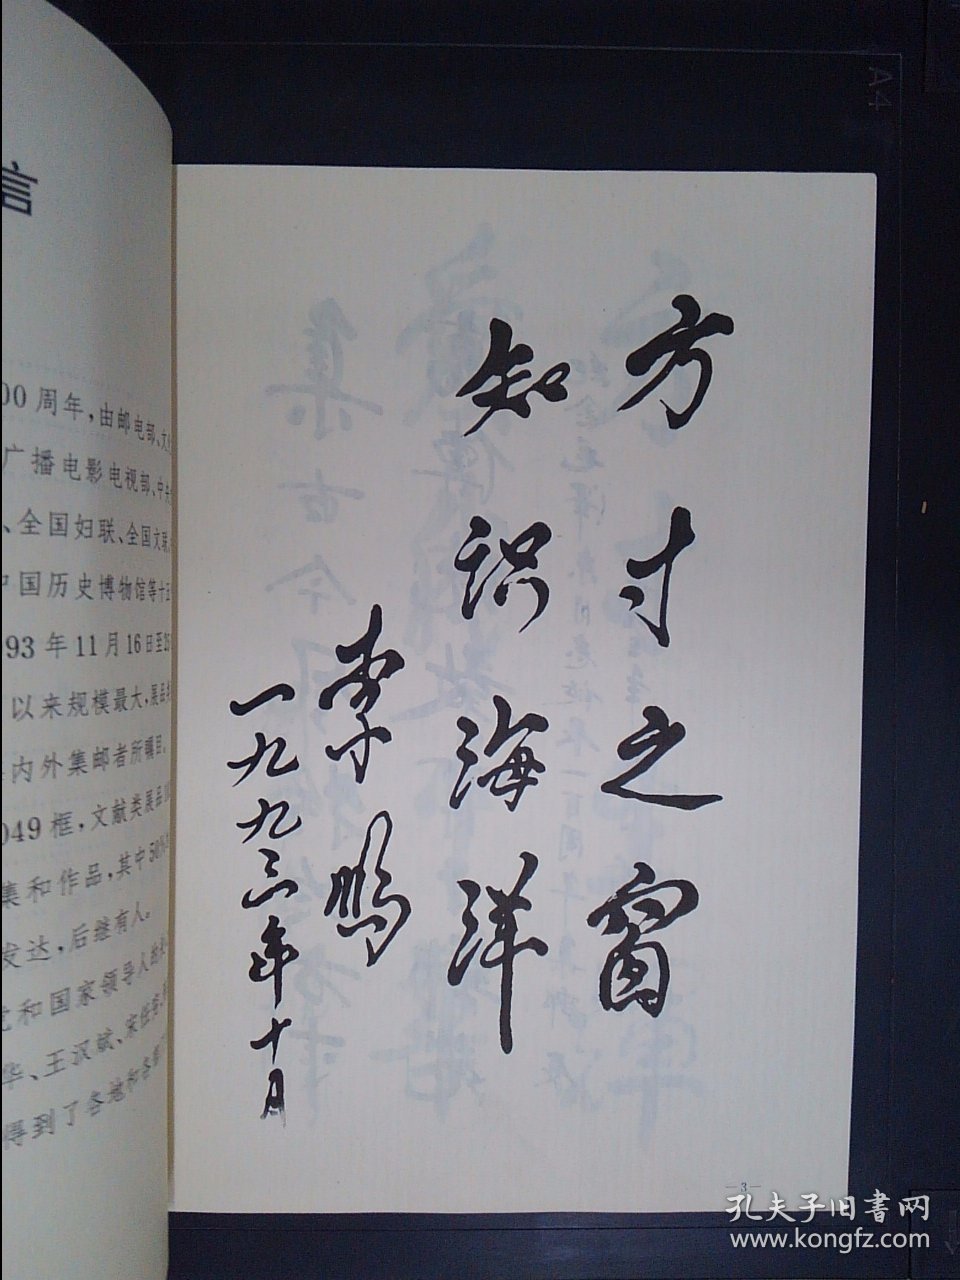 方寸之窗
知识海洋
李鹏
一九九三年十月
—3—
言
00周年，由邮电部、文
广播电影电视部、中央
、全国妇联、全国文联、
中国历史博物馆等十五
93年11月16日至25
以来规模最大，展品
内外集邮者所瞩目。
049框，文献类展品
集和作品，其中50%
发达，后继有人。
党和国家领导人
华、王汉斌、宋任穷、
得到了各地和各
A4
孔夫子旧书网
www.kongfz.com